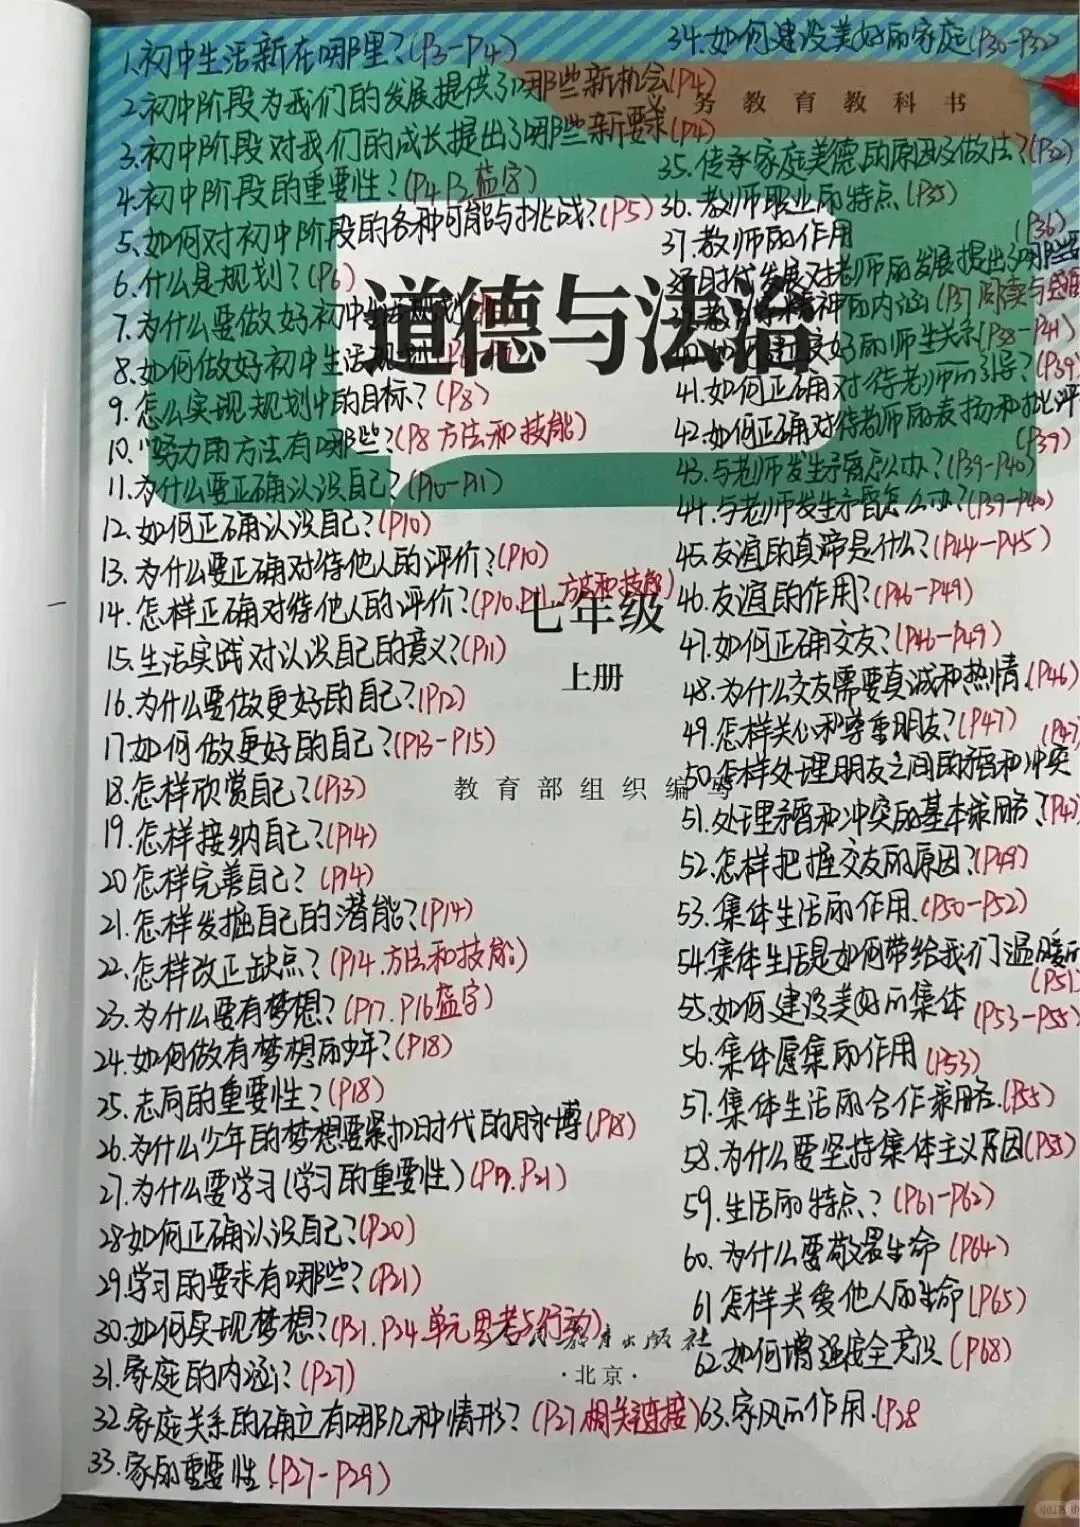 1.初中生活新在哪里?(P3-P4)
2.初中阶段为我们的发展提供了哪些新机会(P4)
3.初中阶段对我们的成长提出了哪些新要求(P4)
4.初中阶段的重要性?(P4.P3.蓝字)
5.如何对初中阶段的各种可能与挑战?(P5)
6.什么是规划?(P6)
7.为什么要做好初中生活规划
8.如何做好初中生活规划
9.怎么实现规划中的目标?(P8)
10."努力的方法有哪些?(P8方法和技能)
11.为什么要正确认识自己?(P10-P11)
12.如何正确认识自己?(P10)
13.为什么要正确对待他人的评价?(P10)
14.怎样正确对待他人的评价?(P10.P11.方法和技能)
15.生活实践对认识自己的意义?(P11)
16.为什么要做更好的自己?(P12)
17.如何做更好的自己?(P13-P15)
18.怎样欣赏自己?(P13)
19.怎样接纳自己?(P14)
20怎样完善自己?(P14)
21.怎样发掘自己的潜能?(P14)
22.怎样改正缺点?(P14.方法和技能)
23.为什么要有梦想?(P17.P16蓝字)
24.如何做有梦想的少年?(P18)
25.志向的重要性?(P18)
26.为什么少年的梦想要紧扣时代的脉博(P18)
27.为什么要学习(学习的重要性)(P19.P21)
28如何正确认识自己?(P20)
29.学习的要求有哪些?(P21)
30.如何实现梦想?(P21.P24单元思考与行动)
31.家庭的内涵?(P27)
32.家庭关系的确立有哪几种情形?(P27相关链接)
33.家的重要性(P27-P29)
34.如何建设美好的家庭(P30-P32)
义务教育教科书
35.传承家庭美德的原因及做法?(P32)
36.教师职业的特点(P35)
37.教师的作用(P36)
38时代发展对老师的发展提出了哪些
39.教育家精神的内涵(P37阅读与感悟
40.如何建立美好的师生关系(P38-P41)
41.如何正确对待老师的引导?(P39)
42.如何正确对待老师的表扬和批评(P39)
43.与老师发生矛盾怎么办?(P39-P40)
44.与老师发生矛盾怎么办?(P39-P40)
45.友谊的真谛是什么?(P44-P45)
46.友谊的作用?(P46-P49)
47.如何正确交友?(P46-P49)
48.为什么交友需要真诚和热情.(P46)
49.怎样关心和尊重朋友?(P47)
50.怎样处理朋友之间的矛盾和冲突(P47)
51.处理矛盾和冲突的基本策略?(P47
52.怎样把握交友的原因?(P49)
53.集体生活的作用.(P50-P52)
54.集体生活是如何带给我们温暖的(P51)
55.如何建设美好的集体(P53-P55)
56.集体愿景的作用(P53)
57.集体生活的合作策略.(P55)
58.为什么要坚持集体主义原因(P55)
59.生活的特点?(P61-P62)
60.为什么要敬畏生命(P64)
61怎样关爱他人的生命(P65)
62.如何增强安全意识(P68)
63.家风的作用.(P28
道德与法治
七年级
上册
教育部组织编写
教育出版社
·北京·